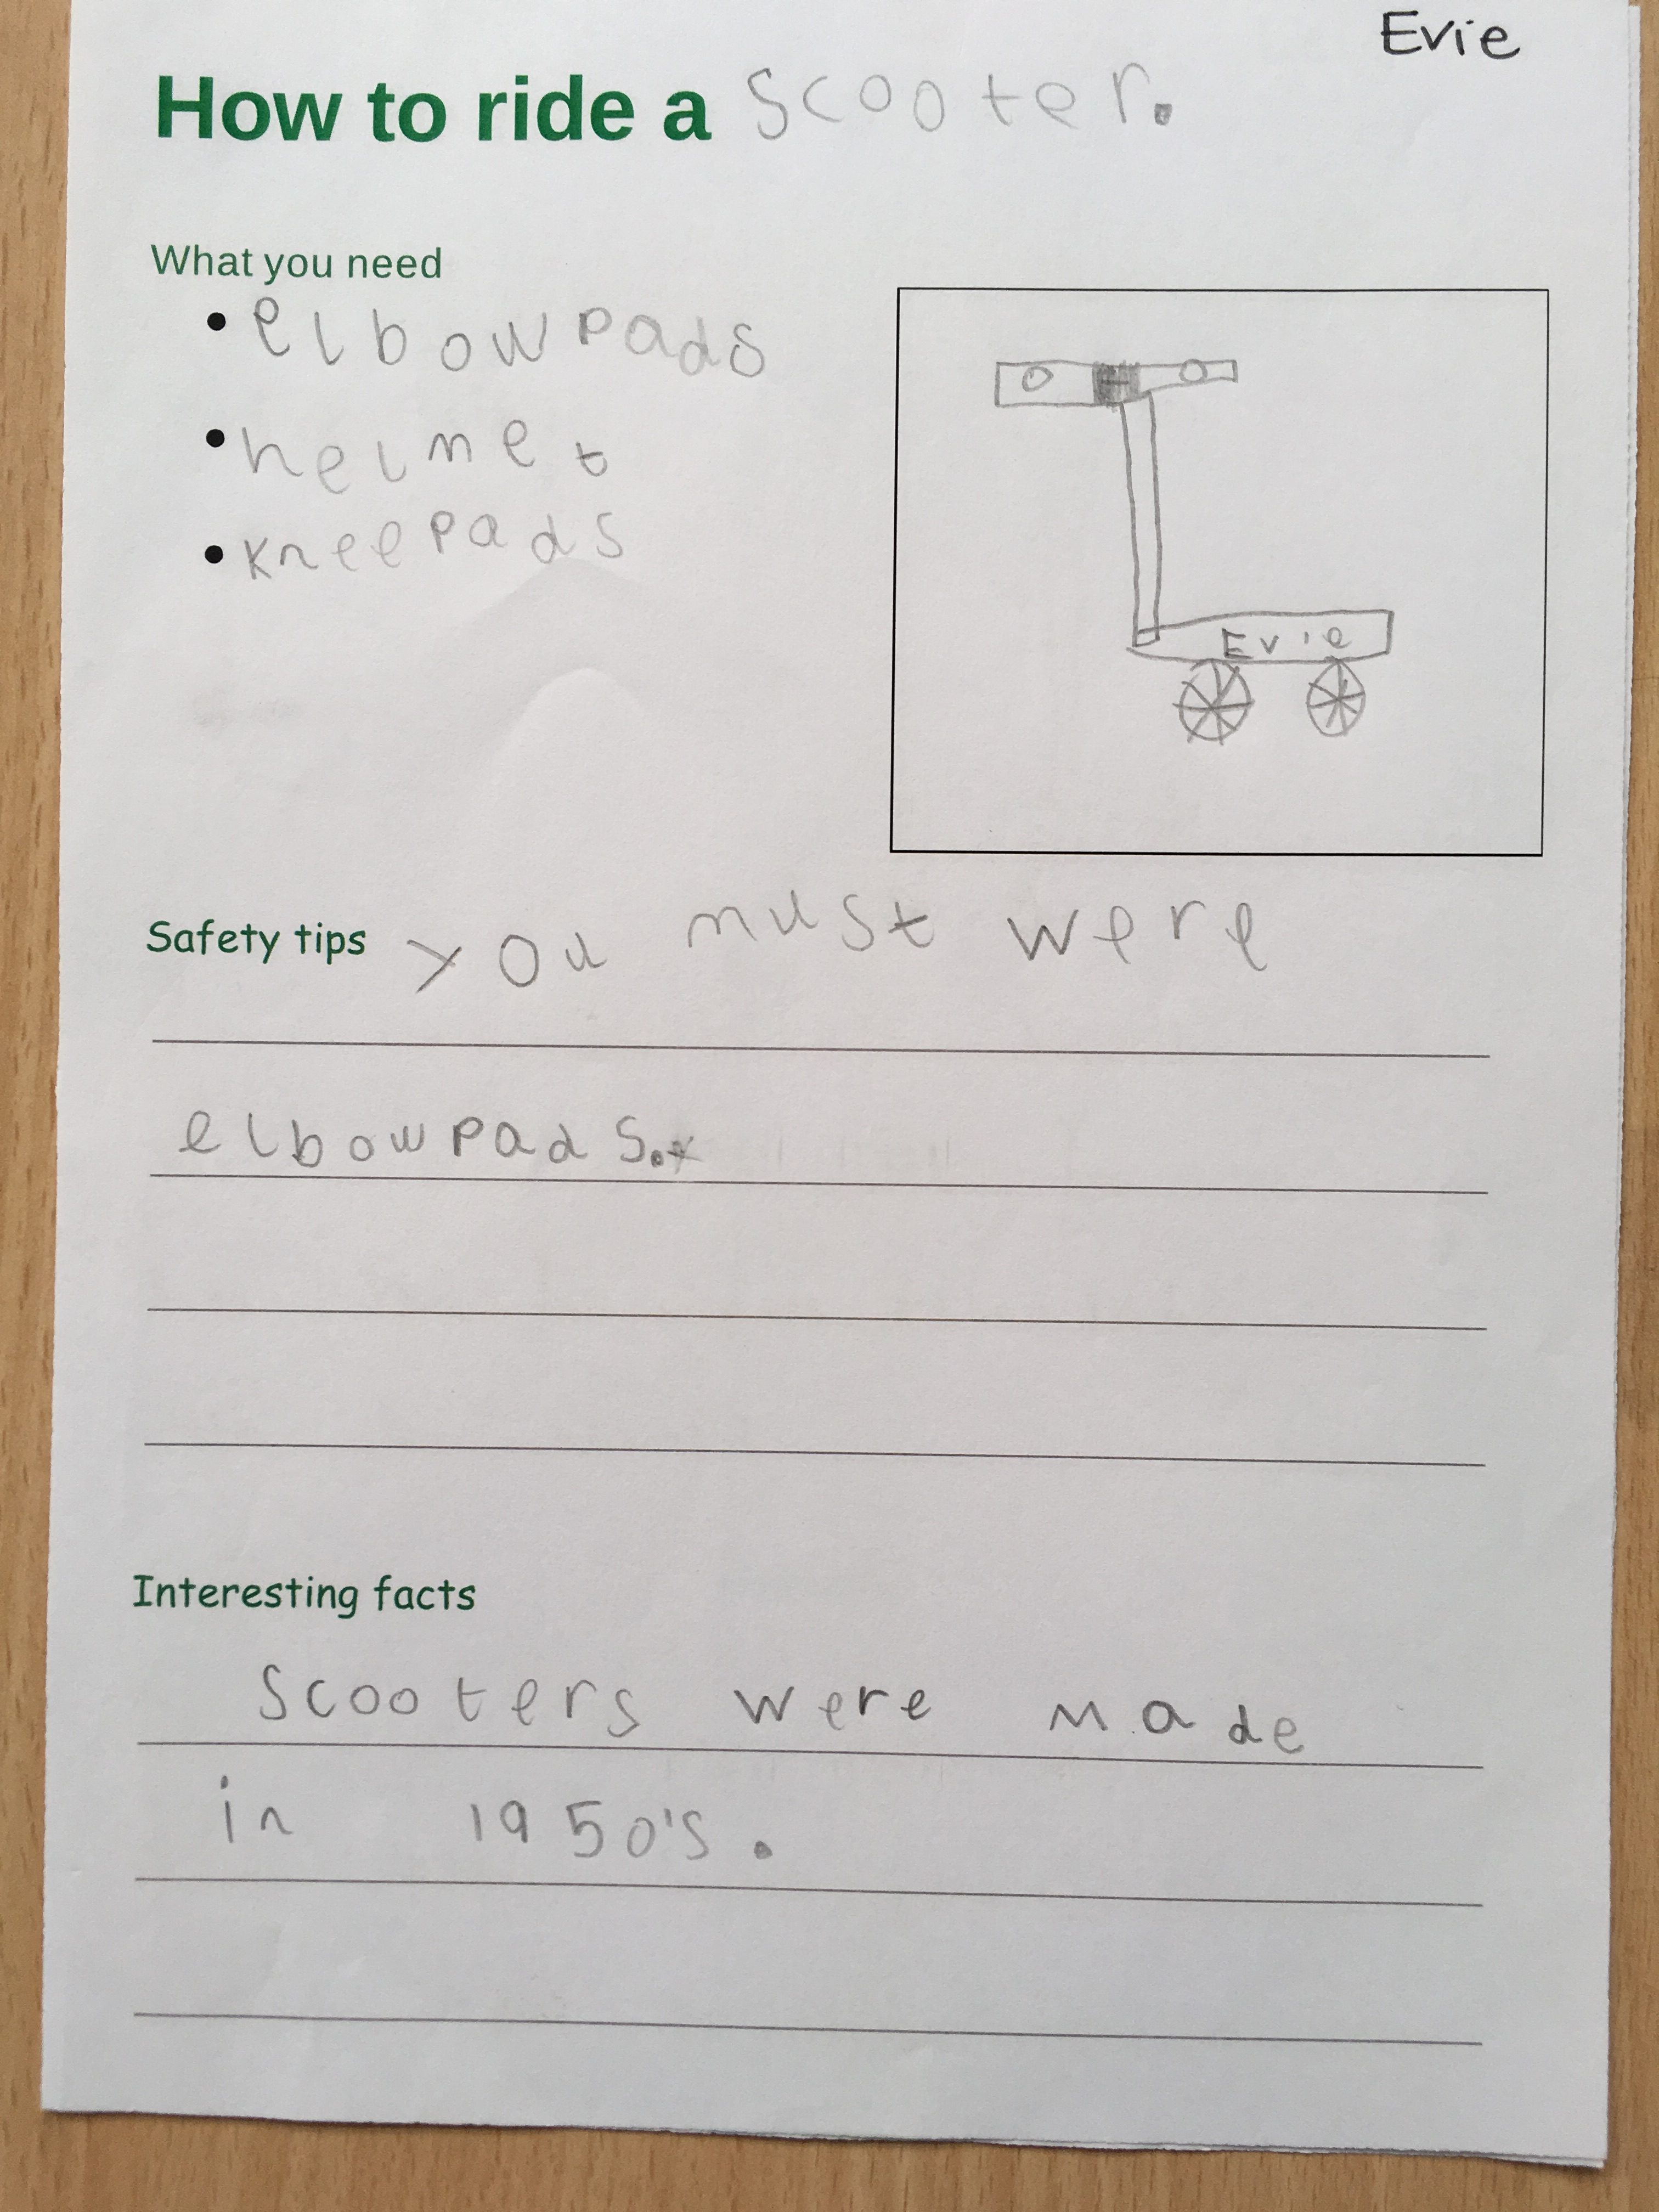 Evie
How to ride a scooter.
What you need
• elbowpads
• helmet
• kneepads
Evie
Safety tips you must were
elbowpads.
Interesting facts
Scooters were made
in 1950's.